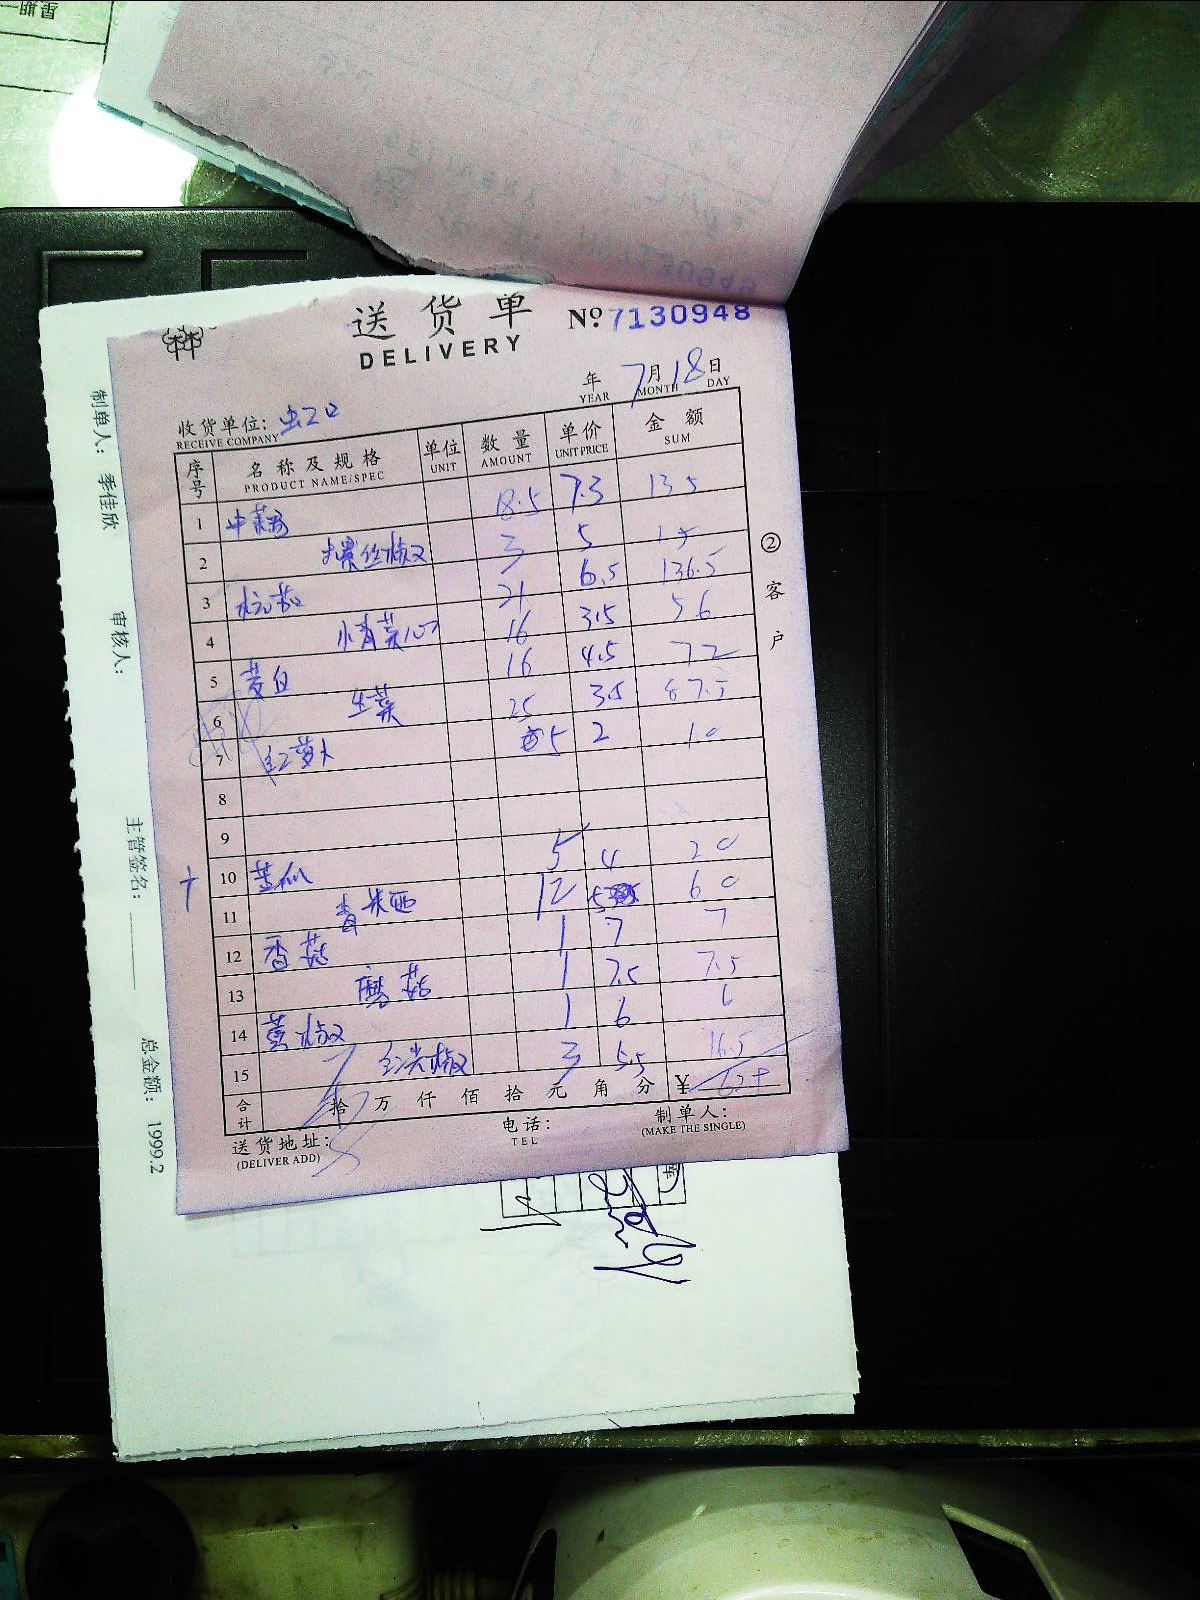 送货单 № 7130948
DELIVERY
年 7月18日
YEAR MONTH DAY
收货单位: 虹口
RECEIVE COMPANY
序号 名称及规格 单位 数量 单价 金额
PRODUCT NAME/SPEC UNIT AMOUNT UNIT PRICE SUM
1 18.5 7.3 135
2 螺丝椒 3 5 15
3 杭茄 21 6.5 136.5
4 小青菜心 16 3.5 56
5 茭白 16 4.5 72
6 生菜 25 3.5 87.5
7 红萝卜 5 2 10
8
9
10 黄瓜 5 4 20
11 12 5 60
12 香菇 1 7 7
13 磨菇 1 7.5 7.5
14 黄椒 1 6 6
15 红尖椒 3 5.5 16.5
合计 拾 万 仟 佰 拾 元 角 分 ¥
送货地址: 电话: 制单人:
(DELIVER ADD) TEL (MAKE THE SINGLE)
②客户
制单人: 季佳欣
审核人:
主管签名:
总金额: 1999.2